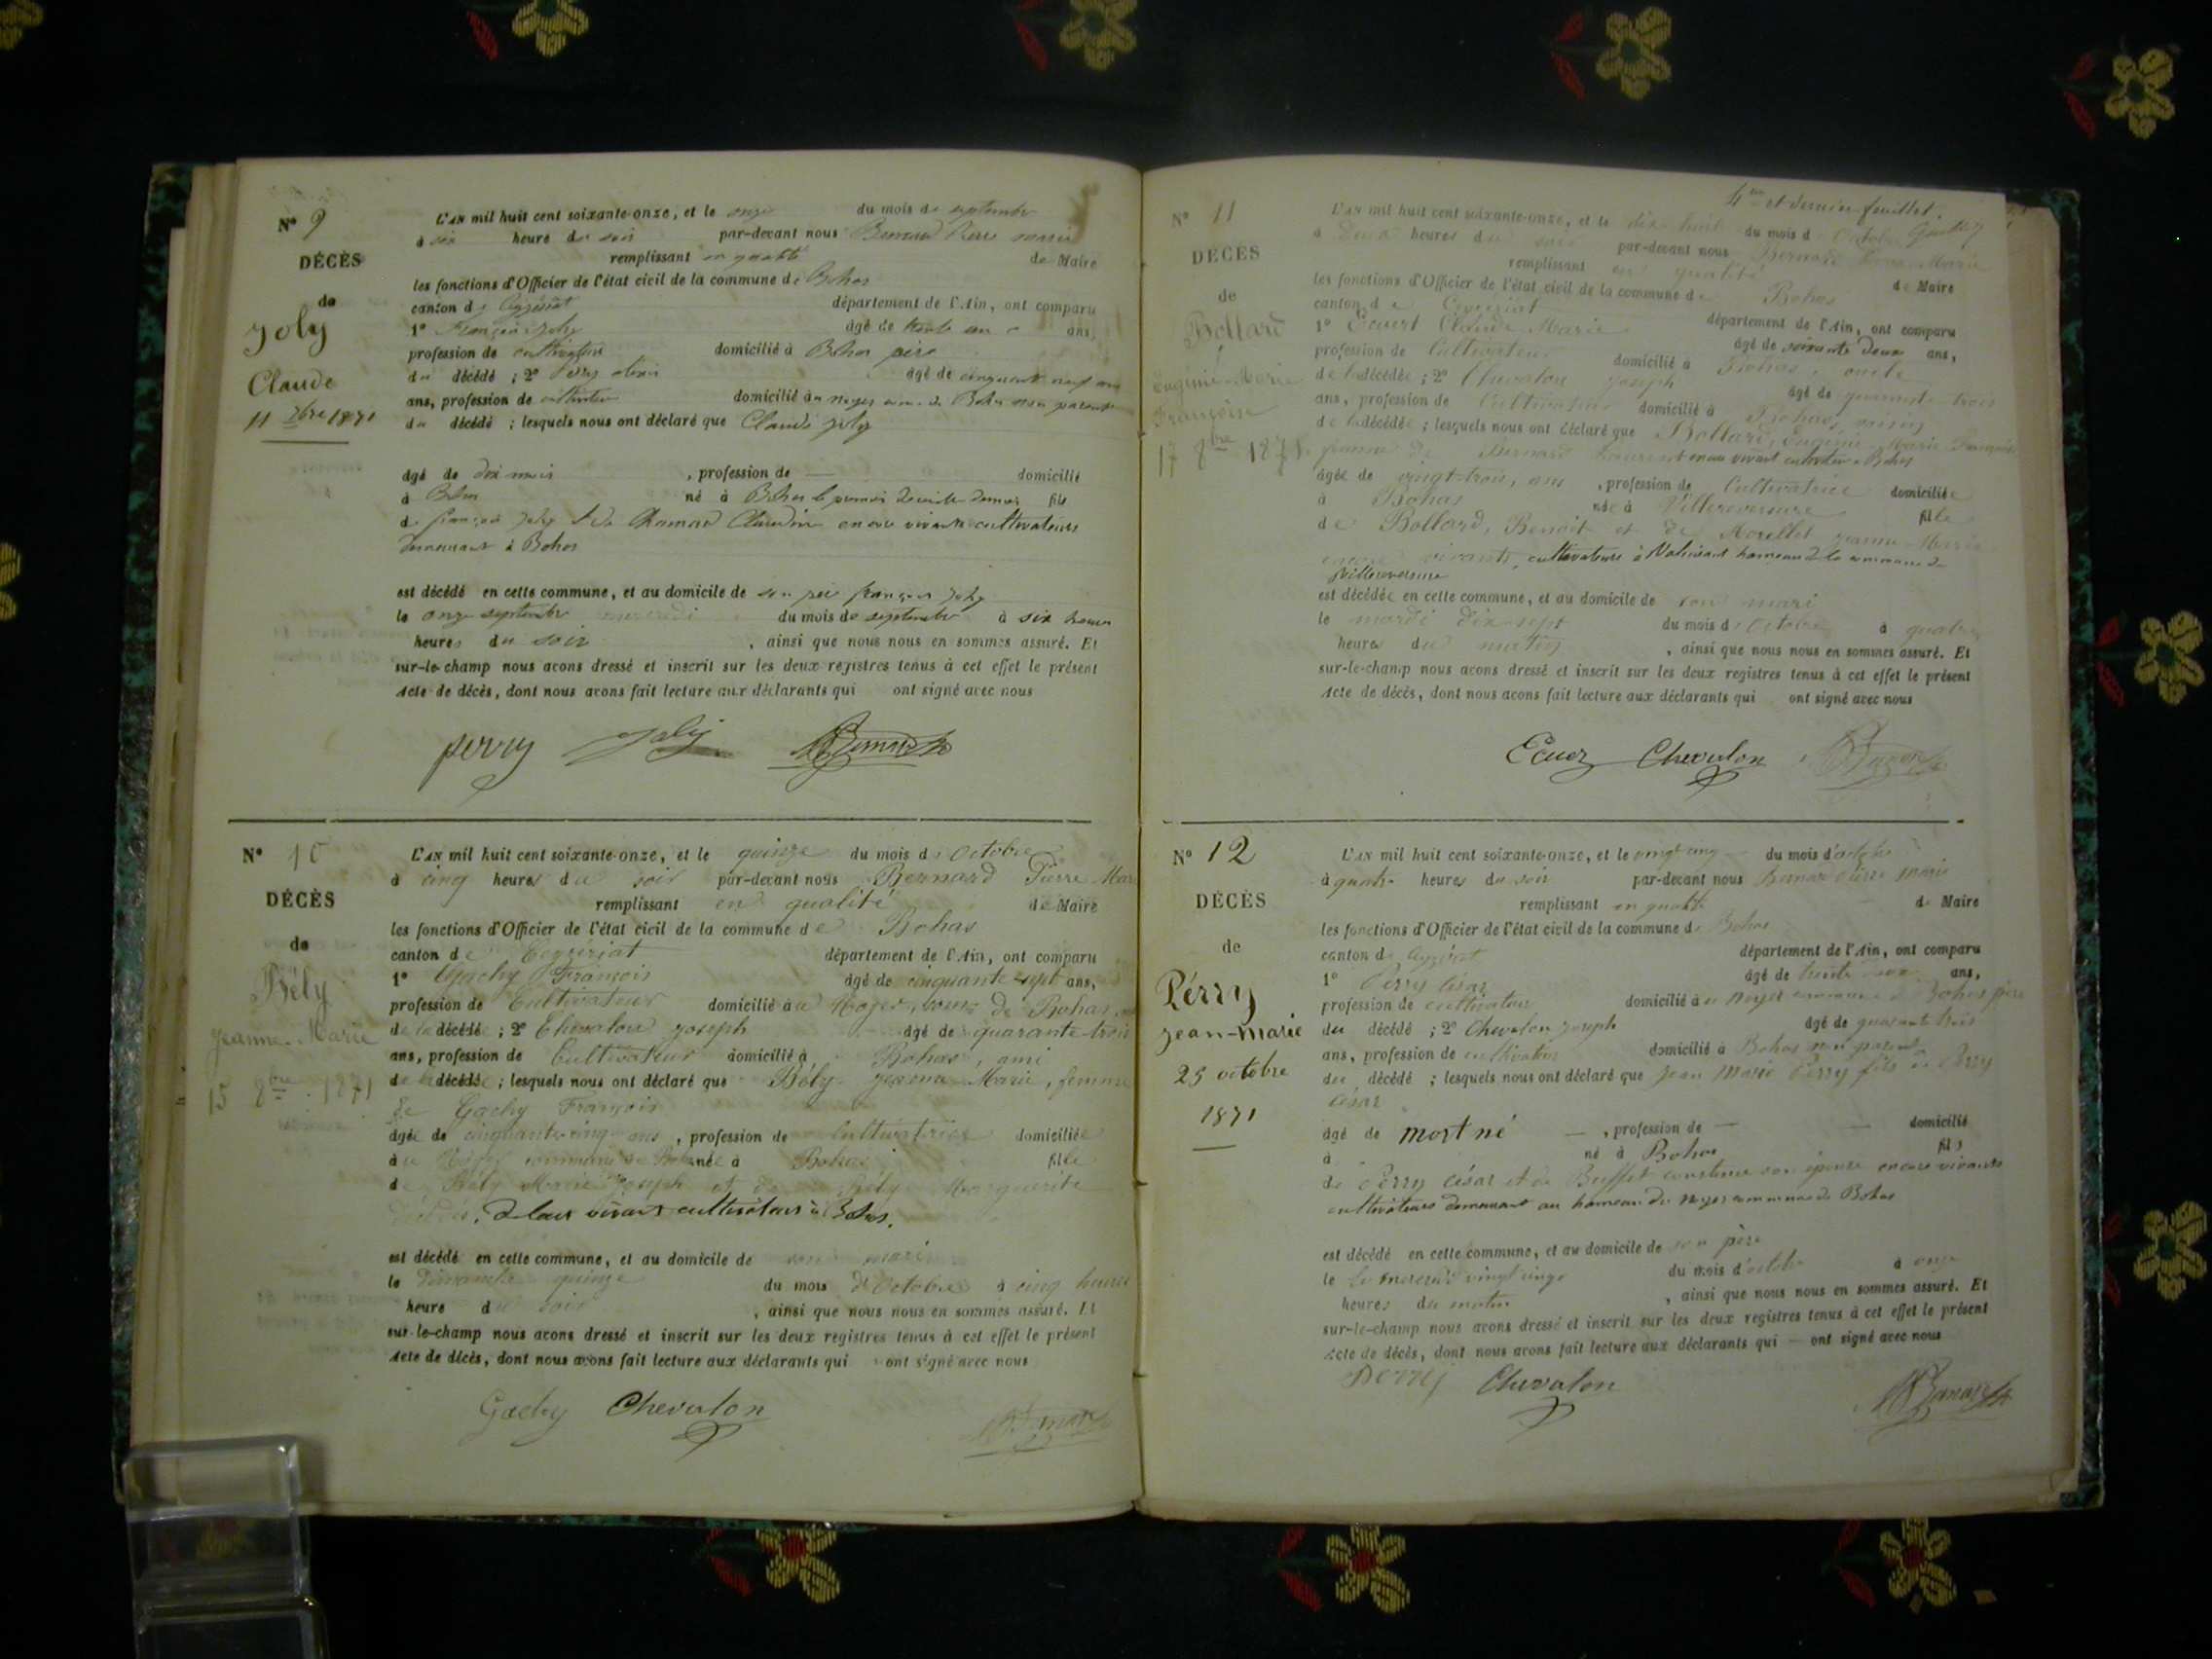 N° 9
DÉCÈS
de
Joly
Claude
11 7bre 1871
L'AN mil huit cent soixante-onze, et le onze du mois de septembre
à six heure du soir par-devant nous Bernard Pierre Marie
remplissant en qualité de Maire
les fonctions d'Officier de l'état civil de la commune de Bohas
canton de Ceyzériat département de l'Ain, ont comparu
1° François Joly âgé de trente ans,
profession de cultivateur domicilié à Bohas père
du décédé ; 2° Perry âgé de cinquante neuf ans
ans, profession de cultivateur domicilié au noyer de Bohas non parent
du décédé ; lesquels nous ont déclaré que Claude Joly
âgé de mois , profession de — domicilié
à Bohas né à Bohas le premier fils
de françois Joly et de Claudine encore vivants cultivateurs
demeurant à Bohas
est décédé en cette commune, et au domicile de son père françois Joly
le onze septembre mercredi du mois de septembre à six heures
heures du soir , ainsi que nous nous en sommes assuré. Et
sur-le-champ nous avons dressé et inscrit sur les deux registres tenus à cet effet le présent
Acte de décès, dont nous avons fait lecture aux déclarants qui ont signé avec nous
perry Joly Bernard
N° 10
DÉCÈS
de
Bély
Jeanne-Marie
15 8bre 1871
L'AN mil huit cent soixante-onze, et le quinze du mois d'Octobre
à cinq heures du soir par-devant nous Bernard Pierre Marie
remplissant en qualité de Maire
les fonctions d'Officier de l'état civil de la commune de Bohas
canton de Ceyzériat département de l'Ain, ont comparu
1° Gachy François âgé de cinquante sept ans,
profession de Cultivateur domicilié au Noyer, de Bohas
de la décédé ; 2° Chevalon Joseph âgé de quarante-trois
ans, profession de Cultivateur domicilié à Bohas, ami
de la décédée ; lesquels nous ont déclaré que Bély Jeanne Marie, femme
de Gachy François
âgée de cinquante-cinq ans , profession de Cultivatrice domiciliée
au Noyer commune de Bohas née à Bohas fille
de Bély Marie Joseph et de Bély Marguerite
de leur vivant cultivateurs à Bohas.
est décédé en cette commune, et au domicile de son mari
le dimanche quinze du mois d'Octobre à cinq heures
heure du soir , ainsi que nous nous en sommes assuré. Et
sur-le-champ nous avons dressé et inscrit sur les deux registres tenus à cet effet le présent
Acte de décès, dont nous avons fait lecture aux déclarants qui ont signé avec nous
Gachy Chevalon Bernard
4me et dernier feuillet.
N° 11
DÉCÈS
de
Bollard
Eugénie-Marie
Françoise
17 8bre 1871
L'AN mil huit cent soixante-onze, et le dix huit du mois d'Octobre
à heures du soir par-devant nous Bernard Pierre Marie
remplissant en qualité de Maire
les fonctions d'Officier de l'état civil de la commune de Bohas
canton de Ceyzériat département de l'Ain, ont comparu
1° Claude Marie âgé de soixante deux ans,
profession de Cultivateur domicilié à Bohas, oncle
de la décédée ; 2° Chevalon Joseph âgé de quarante-trois
ans, profession de Cultivateur domicilié à Bohas, voisin
de la décédée ; lesquels nous ont déclaré que Bollard, Eugénie Marie Françoise
femme de Bernard encore vivant cultivateur à Bohas
âgée de vingt-trois, ans , profession de Cultivatrice domiciliée
à Bohas née à Villereversure fille
de Bollard, Benoit et de Morellet Jeanne-Marie
encore vivants, cultivateurs à hameau de la commune de
Villereversure
est décédée en cette commune, et au domicile de son mari
le mardi dix-sept du mois d'Octobre à quatre
heures du matin , ainsi que nous nous en sommes assuré. Et
sur-le-champ nous avons dressé et inscrit sur les deux registres tenus à cet effet le présent
Acte de décès, dont nous avons fait lecture aux déclarants qui ont signé avec nous
Ecuer Chevalon Bernard
N° 12
DÉCÈS
de
Pérry
jean-marie
25 octobre
1871
L'AN mil huit cent soixante-onze, et le vingt cinq du mois d'octobre
à quatre heures du soir par-devant nous Bernard Pierre Marie
remplissant en qualité de Maire
les fonctions d'Officier de l'état civil de la commune de Bohas
canton de Ceyzériat département de l'Ain, ont comparu
1° Perry César âgé de trente ans,
profession de cultivateur domicilié au noyer commune de Bohas père
du décédé ; 2° Chevalon joseph âgé de quarante trois
ans, profession de cultivateur domicilié à Bohas non parent
du décédé ; lesquels nous ont déclaré que Jean Marie Perry fils de Perry
César
âgé de mort né — , profession de — — domicilié
à né à Bohas fils
de Perry César et de Buffet constance son épouse encore vivants
cultivateurs demeurant au hameau du noyer commune de Bohas
est décédé en cette commune, et au domicile de son père
le le mercredi vingt cinq du mois d'octobre à onze
heures du matin , ainsi que nous nous en sommes assuré. Et
sur-le-champ nous avons dressé et inscrit sur les deux registres tenus à cet effet le présent
Acte de décès, dont nous avons fait lecture aux déclarants qui — ont signé avec nous
Perry Chevalon Bernard